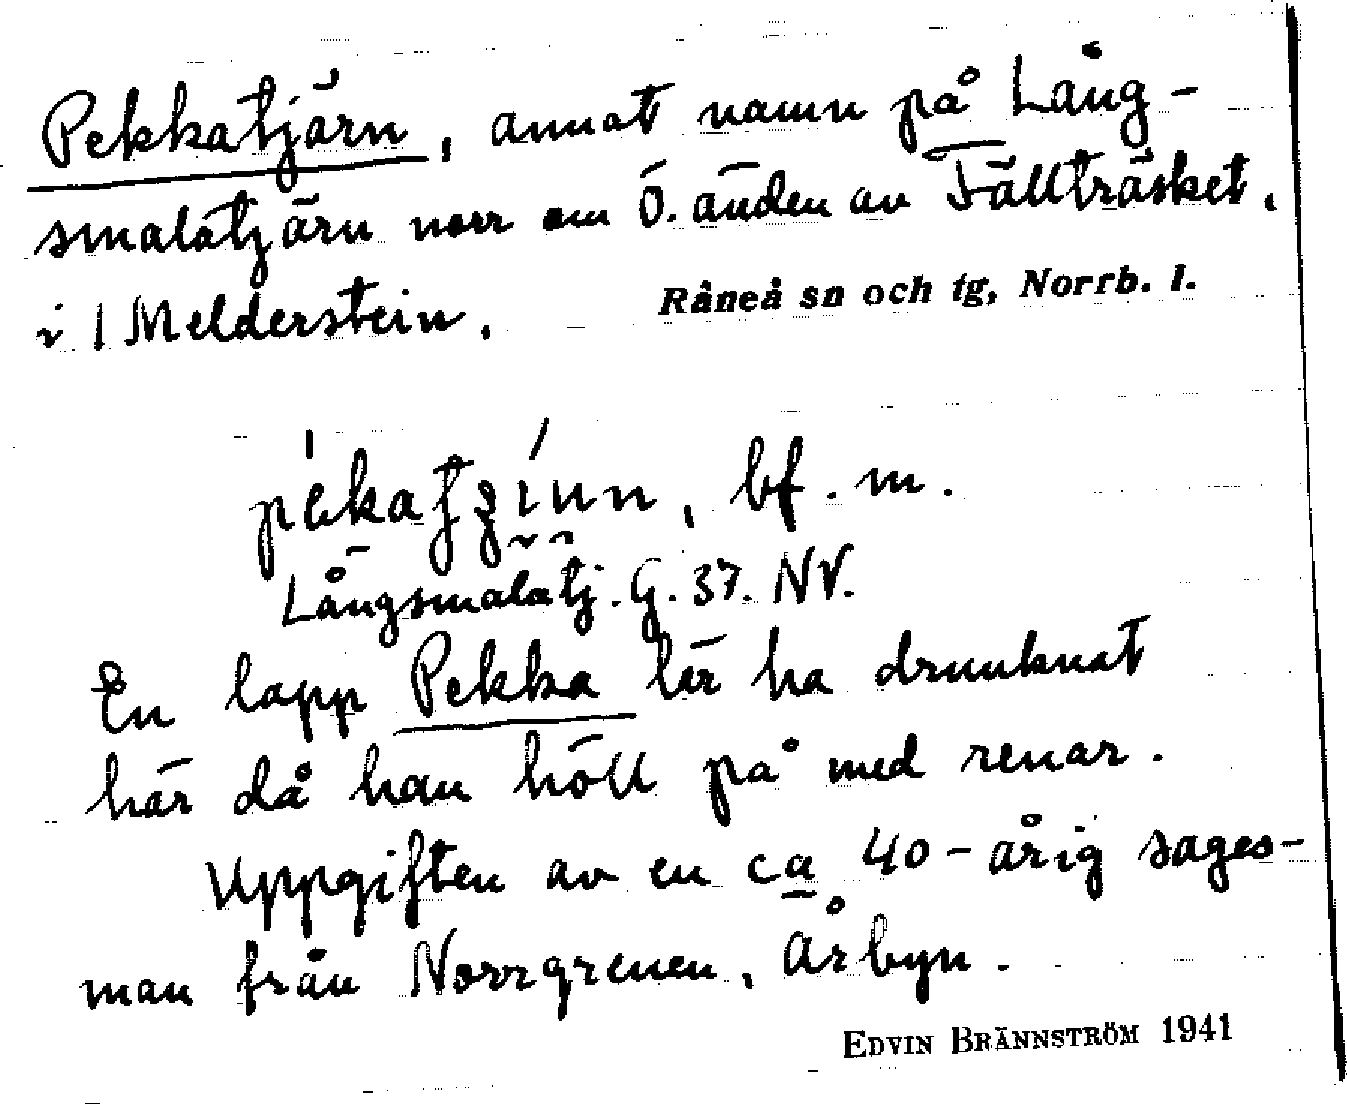 Pekkatjärn, annat namn på Lång-
smalatjärn norr om Ö. änden av Fällträsket.
i 1 Melderstein. Råneå sn och tg, Norrb. l.
bf. m.
Långsmalatj. G. 37. NV.
En lapp Pekka lär ha drunknat
här då han höll på med renar.
Uppgiften av en ca 40-årig sages-
man från Norrgrenen, Årbyn.
EDVIN BRÄNNSTRÖM 1941